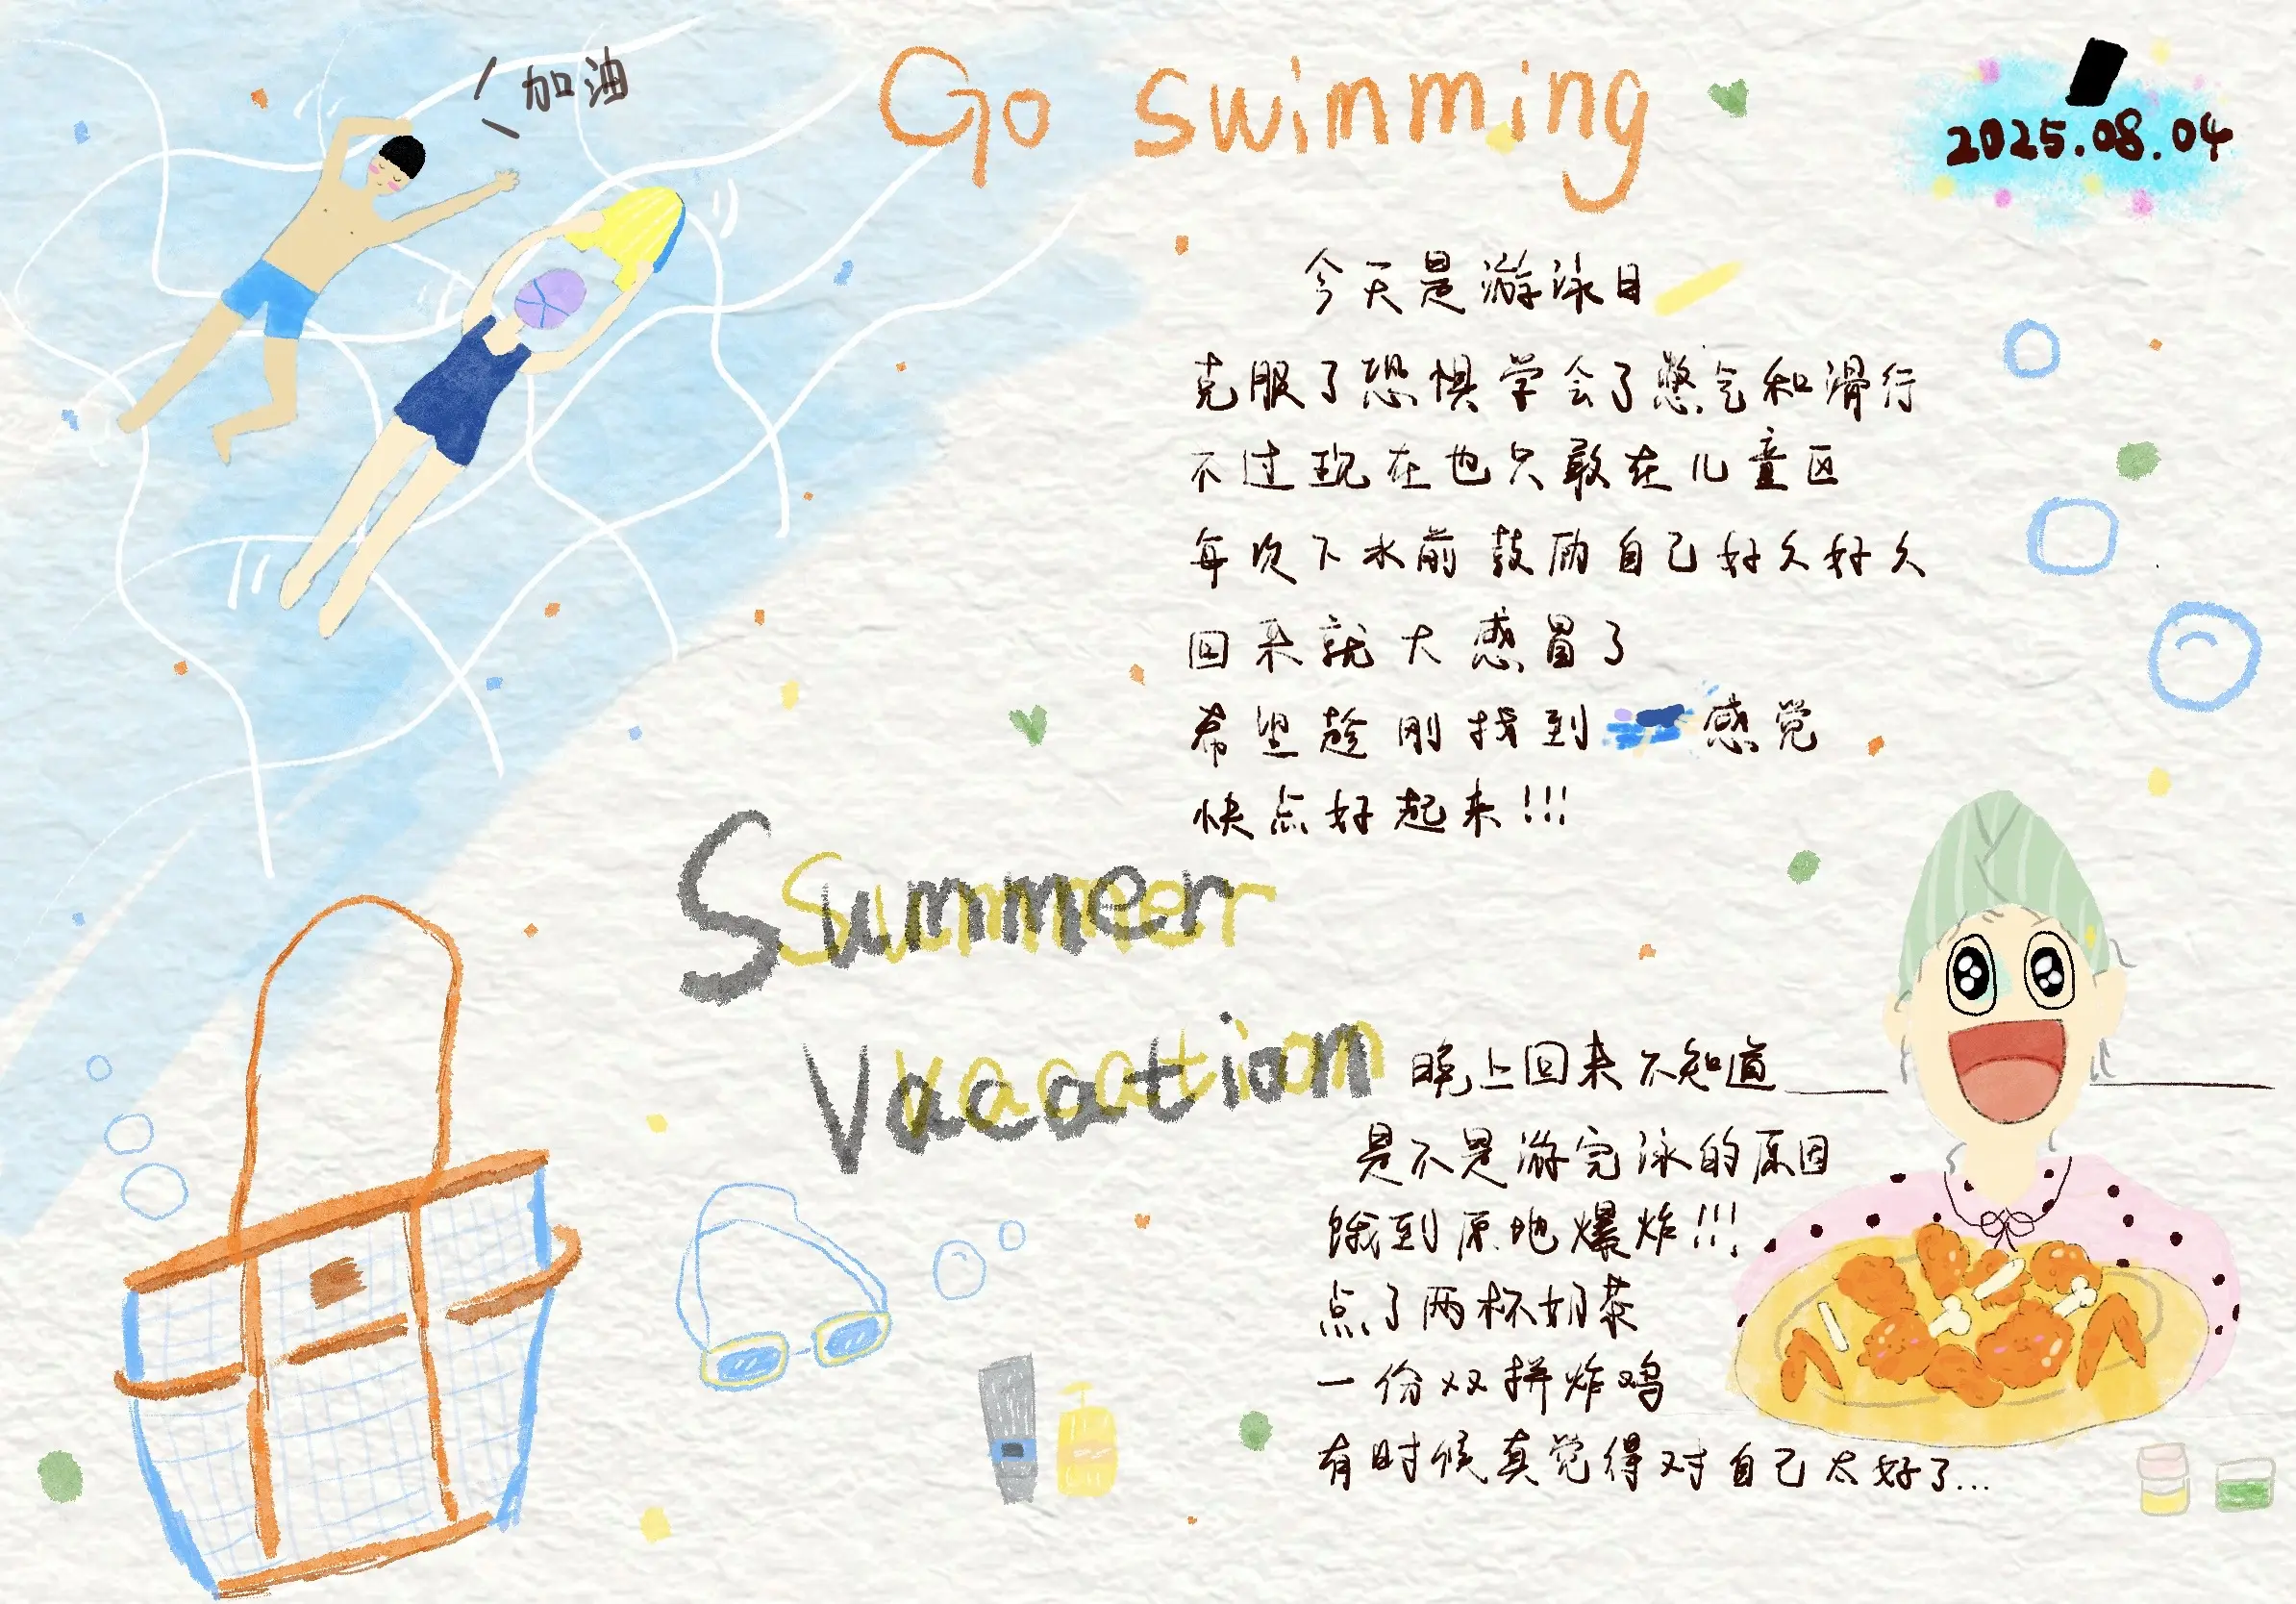 加油
Go swimming
2025.08.04
今天是游泳日
克服了恐惧学会了憋气和滑行
不过现在也只敢在儿童区
每次下水前鼓励自己好久好久
回来就大感冒了
希望趁刚找到感觉
快点好起来!!!
Summer
Summer
Vacation
Vacation
晚上回来不知道
是不是游完泳的原因
饿到原地爆炸!!!
点了两杯奶茶
一份双拼炸鸡
有时候真觉得对自己太好了...